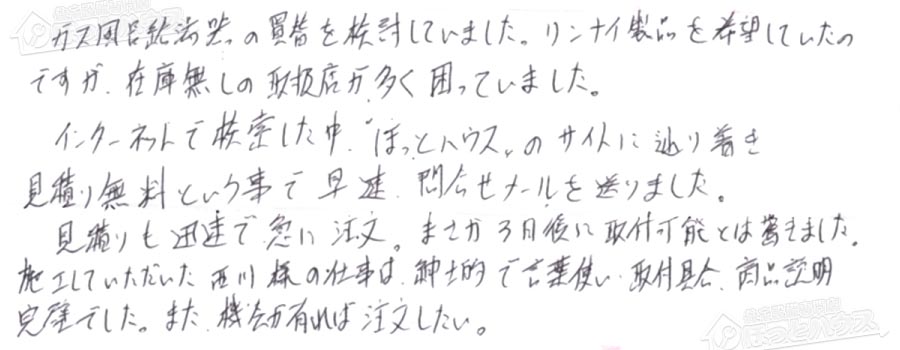 ガス風呂給湯器の買替を検討していました。リンナイ製品を希望していたの
ですが、在庫無しの取扱店が多く困っていました。
インターネットで検索した中、"ほっとハウス"のサイトに辿り着き
見積り無料という事で早速、問合せメールを送りました。
見積りも迅速で急に注文。まさか3日後に取付可能とは驚きました。
施工していただいた西川様の仕事は、紳士的で言葉使い、取付具合、商品説明
完璧でした。また、機会が有れば注文したい。
ほっとハウス